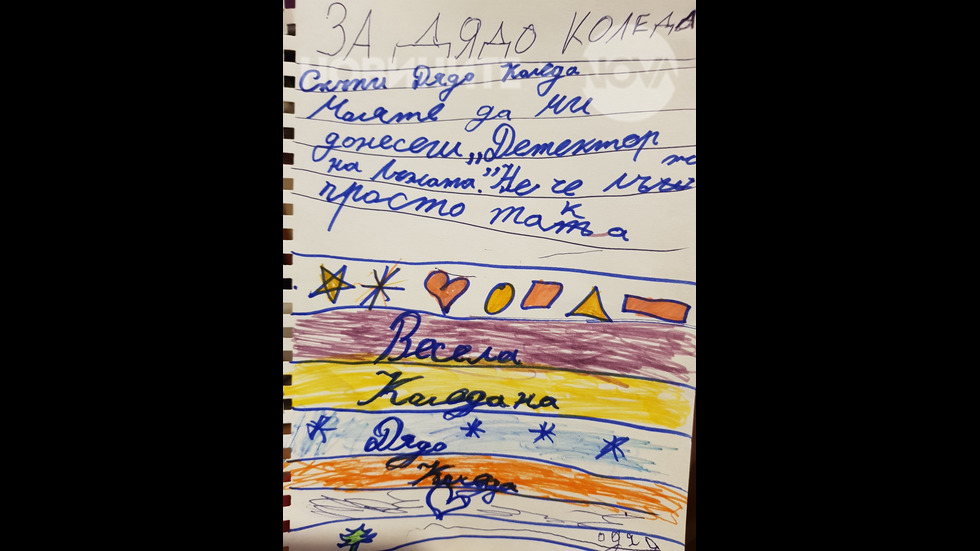 ЗА ДЯДО КОЛЕДА
НОВИНИТЕ NOVA
Скъпи Дядо Коледа
Моляте да ми
донесеш „Детектор
на лъжата." Не че лъжа
просто така
Весела
Коледа на
Дядо
Коледа